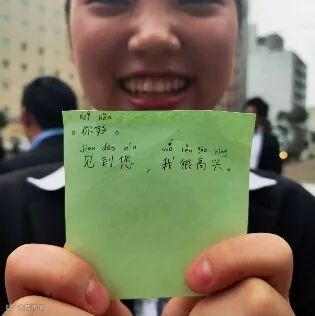 Nǐ hǎo
。你好。
jian dào nín wǒ hěn gāo xìng
见到您，我很高兴。